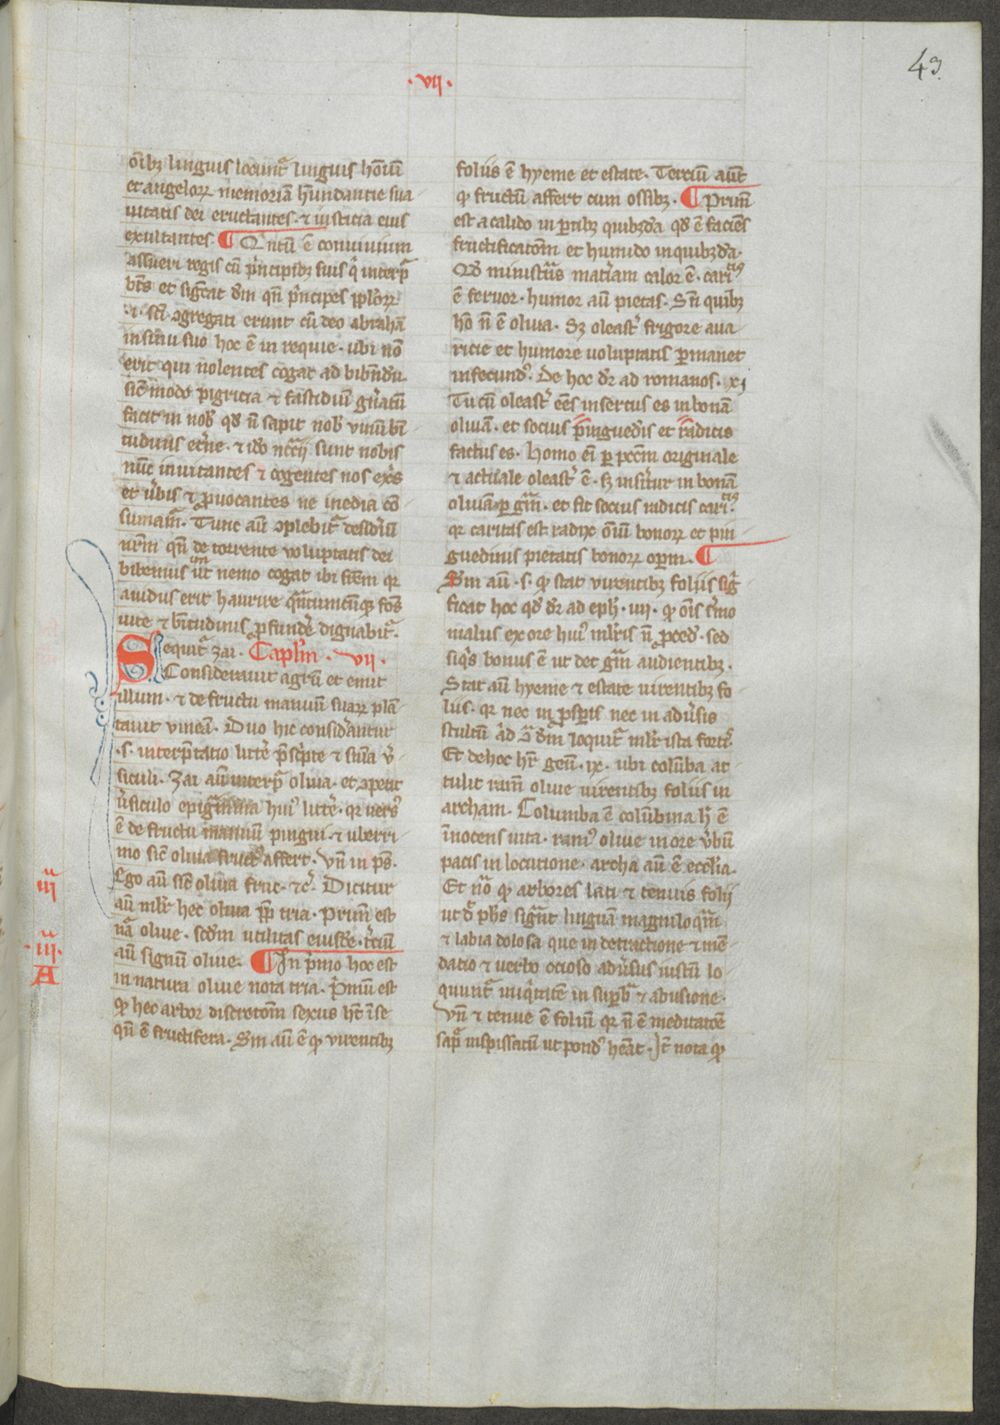 43
·vij·
oībꝫ linguis locūnt̄ linguis hoīm
et angeloꝝ memoriā hūndantie sua
uitatis dei eructantes · ⁊ iusticia eius
exultantes · ¶ Qntū ē conuiuium
assueri regis cū p̄ncipibꝫ suis q̄ interp̄
bt̄s et sigt̄at dm̄ qn̄ p̄ncipes pploꝝ
·i· sc̄i ꝯgregati erunt cū deo abrahā
in sinu suo hoc ē in requie · ubi nō
erit qui nolentes cogat ad bibn̄du
sic̄ modo pigricia ⁊ fastidiū gn̄atū
facit in nob̄ qd̄ n̄ sapit nob̄ uinū bt̄i
tudinis et̄ne · ⁊ iō nc̄c̄ij sunt nobis
nūc inuitantes ⁊ cogentes nos exp̄s
et ūbis ⁊ ꝓuocantes ne inedia cō
sumam̄ · Tunc aū ꝯplebit̄ desid̄iū
nr̄m qn̄ de torrente uoluptatis dei
bibemus ut̄ nemo cogat ibi sitīem qr
auidus erit haurire qn̄tumcūqꝫ fōs
uite ⁊ bt̄itudinis ꝓfund̄e dignabit̄ ·
Sequit̄ zai · Capl̄m · vij ·
Considerauit agrū et emit
illum · ⁊ de fructu manuū suaꝝ plā
tauit uineā · Duo hic consid̄antur
·s· interp̄tatio litt̄e p̄sc̄pte ⁊ sn̄ia v̄
siculi · Zai aū interp̄ oliua · et ꝯpetit
v̄siculo epigrāma huiꝰ litt̄e · qr vers̄
ē de fructu manuū pingui · ⁊ uberri
mo sic̄ oliua fructꝰ affert · Vn̄ in ps̄ ·
Ego aū sic̄ oliua fruc̄ · ⁊c̄ · Dicitur
aū ml̄r hec oliua ꝓp̄ tria · Primū est
nā oliue · scd̄m utilitas eiusdē · t̄ciū
aū signū oliue · ¶ In p̄mo hoc est
in natura oliue nota tria · P̄mū est
qꝫ hec arbor discretōm sexus hēt ī se
qn̄ ē fructifera · Sm̄ aū ē qꝫ virentibꝫ
·iij·
·iij·
A
foliis ē hyeme et estate · Terciū aūt
qꝫ fructū affert cum ossibꝫ · ¶ Primū
est a calido in ꝑtibꝫ quibꝫdā qd̄ ē faciēs
fructificatōm et humido in quibꝫdā ·
Qd̄ ministrās mat̄iam calor ē · caritꝰ
ē feruor · humor aū pietas · Sn̄ quibꝫ
hō n̄ ē oliua · Sꝫ oleast̄ frigore aua
ricie et humore uoluptatis ꝑmanet
infecundꝰ · De hoc dr̄ ad romanos · xj
Tu cū oleast̄ eēs insertus es in bonā
oliuā · et socius pinguedīs et radicis
factus es · Homo eī ꝑ pcc̄m originale
⁊ actuale oleast̄ ē · sꝫ inserit̄ur in bonā
oliuā ꝑ gr̄am · et fit socius radicis caritꝰ ·
qr caritas est radix oīm bonoꝝ et pin
guedinis pietatis bonoꝝ oꝑm · ¶
Sm̄ aū ·s· qꝫ stat virentibꝫ foliis siḡ
ficat hoc qd̄ dr̄ ad eph̄ · iiij · qꝫ oīs s̄mo
malus ex ore huiꝰ ml̄ris n̄ ꝓced̄ · sed
siq̄s bonus ē ut det gr̄am audientibꝫ ·
Stat aū hyeme ⁊ estate uirentibꝫ fo
liis · qr nec in ꝓsꝑis nec in adūsis
stultū a͛d ꝯ̄ dm̄ loquit̄ ml̄r ista fort̄ ·
Et de hoc hr̄ geñ · ix · ubi colūba at
tulit ramū oliue uirentibꝫ foliis in
archam · Columba ē colūbina hͦ ē
īnocens uita · ramꝰ oliue in ore v̄bū
pacis in locutione · archa aū ē ecc̄lia ·
Et nō qꝫ arbores lati ⁊ tenuis folij
ut d̄ ph̄s sigt̄ant linguā magniloqm̄
⁊ labia dolosa que in detractione ⁊ mē
dacio ⁊ uerbo ocioso adūsus iustū lo
quunt̄ iniq̄tatē in suꝑb̄ ⁊ abusione ·
Vn̄ ⁊ tenue ē foliū qr n̄ ē meditatōe
sap̄ inspissatū ut pondꝰ hēat · It̄ nota qꝫ